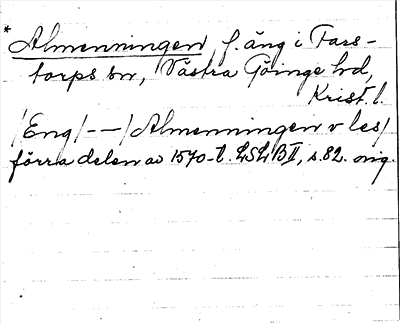 * Almenningen, f. äng i Fars-
torps sn, Västra Göinge hd,
Krist. l.
/Eng/ - - /Almenningen v les/
förra delen av 1570-t. LSLB II, s. 82. orig.